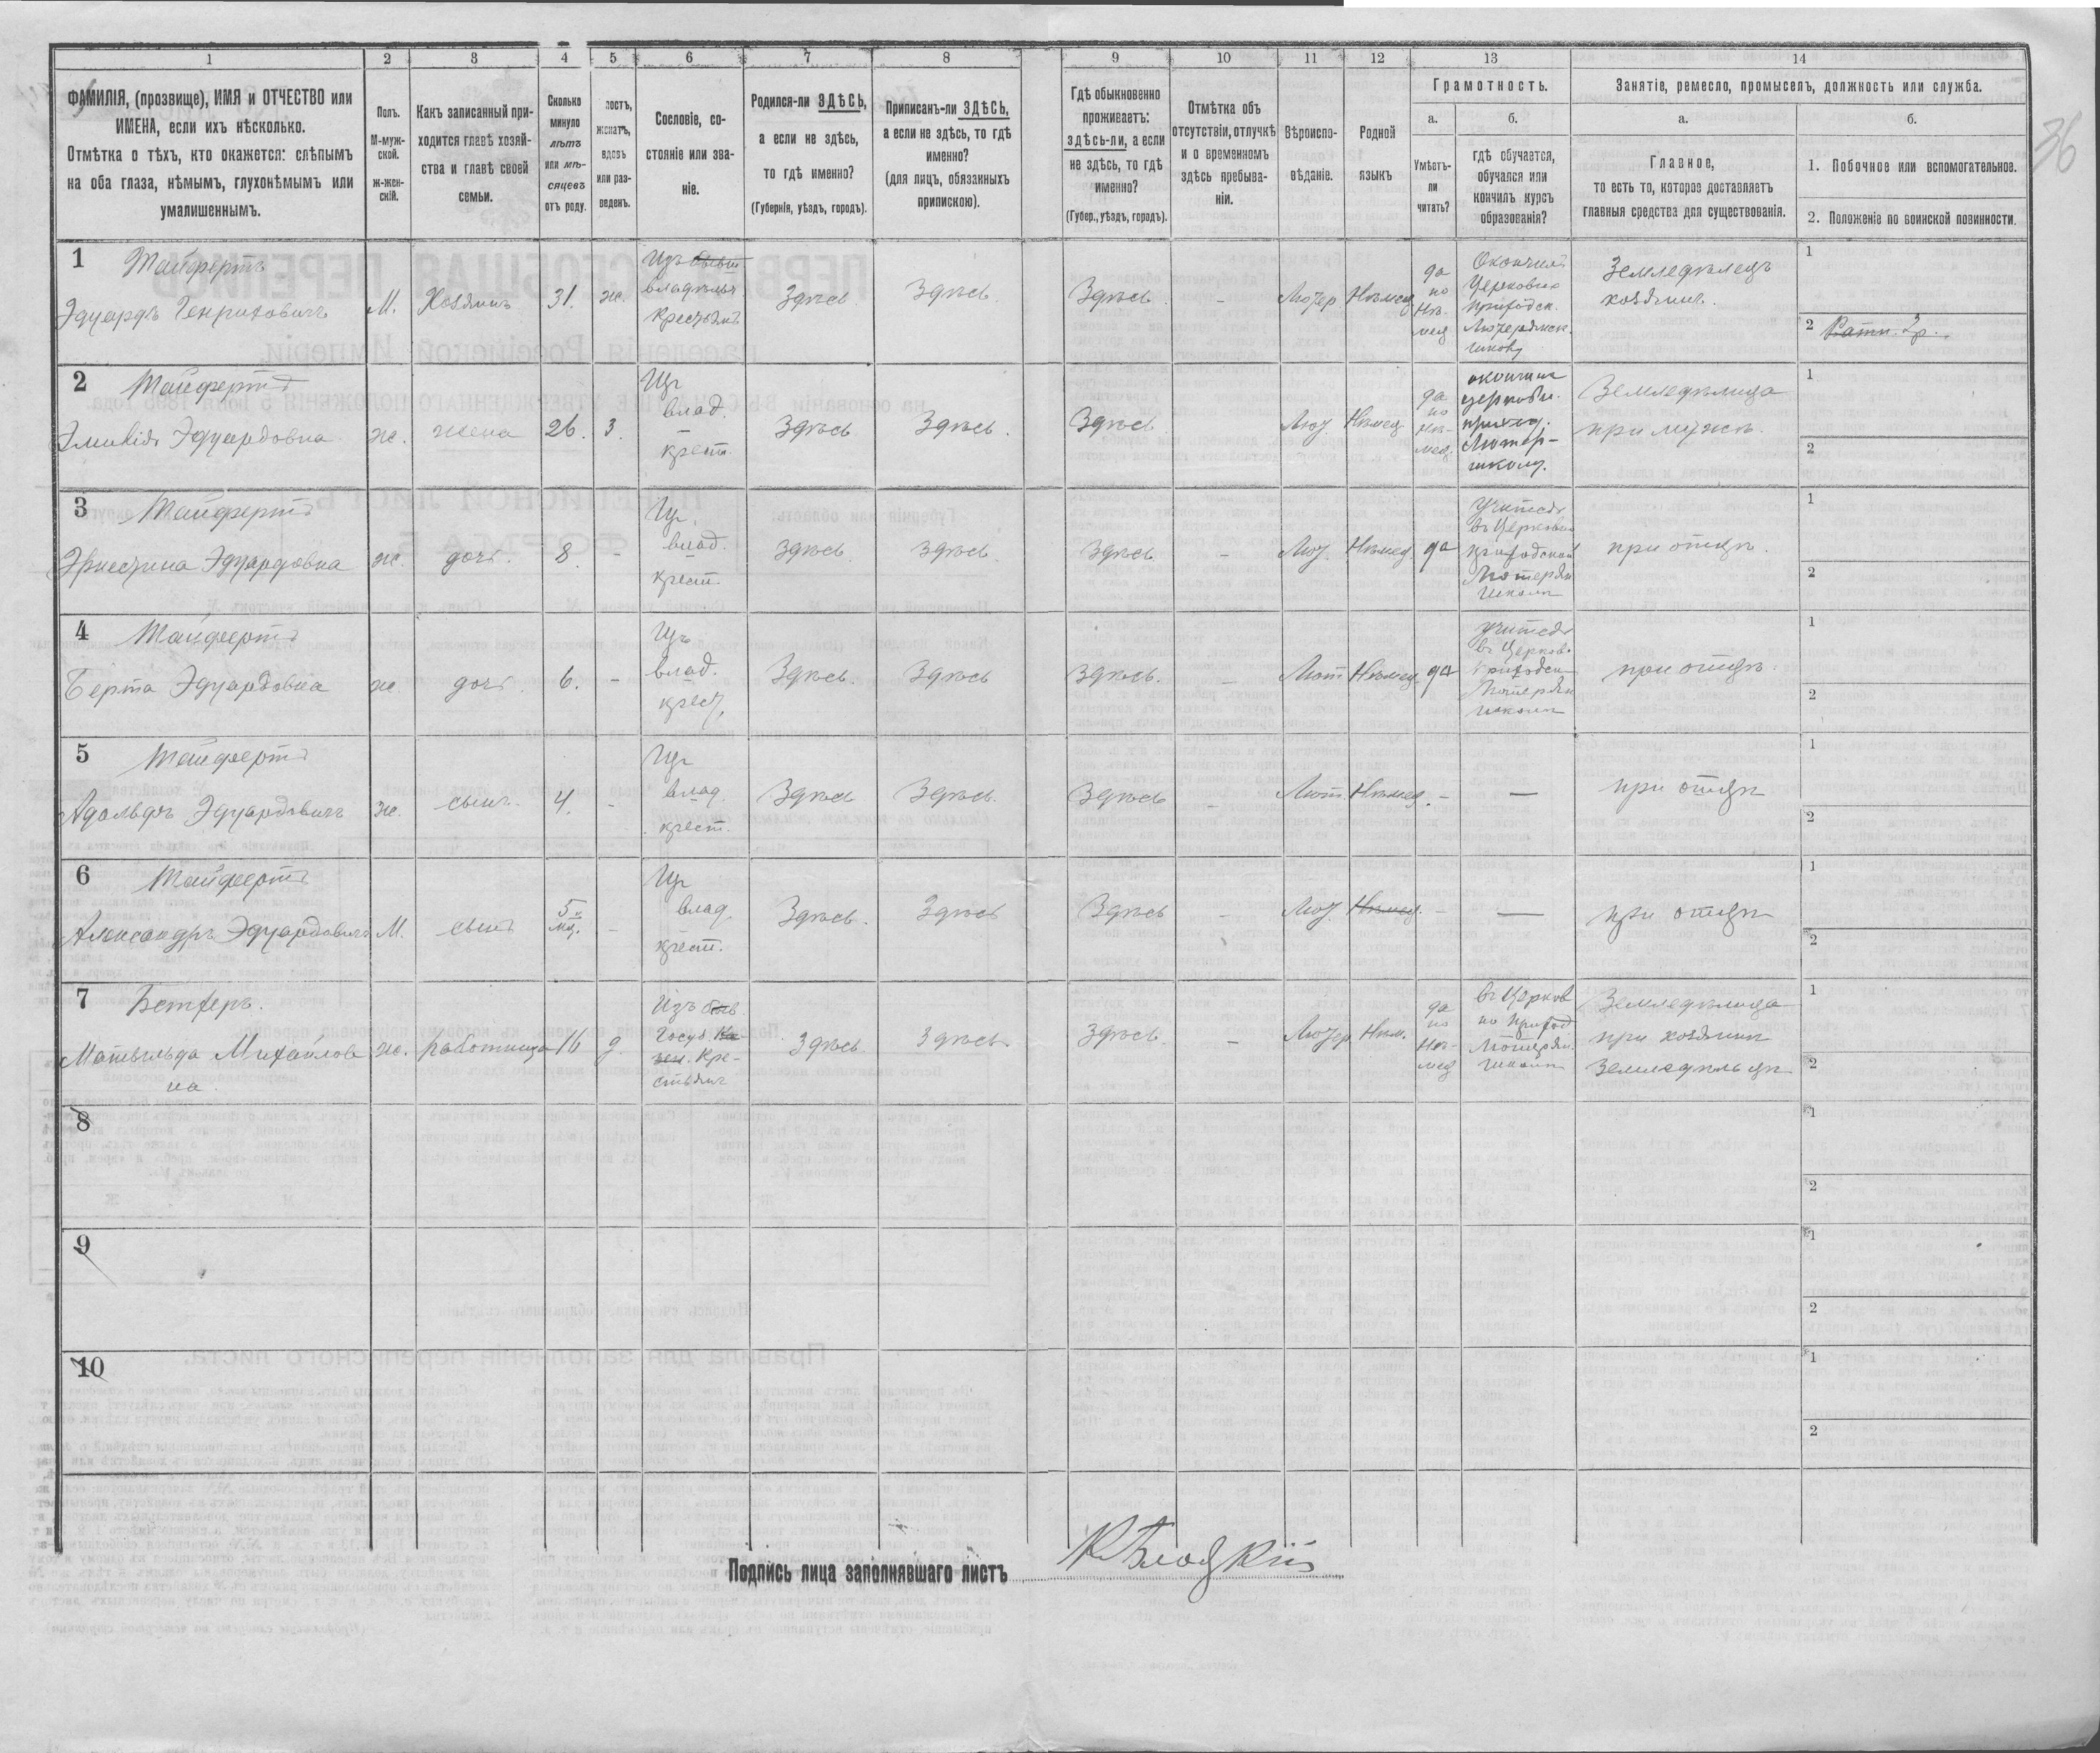 36
1
2
3
4
5
6
7
8
9
10
11
12
13
14
ФАМИЛІЯ, (прозвище), ИМЯ и ОТЧЕСТВО или
ИМЕНА, если ихъ нѣсколько.
Отмѣтка о тѣхъ, кто окажется: слѣпымъ
на оба глаза, нѣмымъ, глухонѣмымъ или
умалишеннымъ.
Полъ.
М-муж-
ской.
ж-жен-
скій.
Какъ записанный при-
ходится главѣ хозяй-
ства и главѣ своей
семьи.
Сколько
минуло
лѣтъ
или мѣ-
сяцевъ
отъ роду.
лостъ,
женатъ,
вдовъ
или раз-
веденъ.
Сословіе, со-
стояніе или зва-
ніе.
Родился-ли ЗДѢСЬ,
а если не здѣсь,
то гдѣ именно?
(Губернія, уѣздъ, городъ).
Приписанъ-ли ЗДѢСЬ,
а если не здѣсь, то гдѣ
именно?
(для лицъ, обязанныхъ
припискою).
Гдѣ обыкновенно
проживаетъ:
здѣсь-ли, а если
не здѣсь, то гдѣ
именно?
(Губер., уѣздъ, городъ).
Отмѣтка объ
отсутствіи, отлучкѣ
и о временномъ
здѣсь пребыва-
ніи.
Вѣроиспо-
вѣданіе.
Родной
языкъ
Грамотность.
а.
Умѣетъ-
ли
читать?
б.
гдѣ обучается,
обучался или
кончилъ курсъ
образованія?
Занятіе, ремесло, промыселъ, должность или служба.
а.
Главное,
то есть то, которое доставляетъ
главныя средства для существованія.
б.
1. Побочное или вспомогательное.
2. Положеніе по воинской повинности.
1 Тайфертъ
Эдуардъ Генриховичъ
М.
Хозяинъ
31.
ж.
Изъ бывш
владѣльч.
крестьянъ
Здѣсь
Здѣсь
Здѣсь
-
Лютер
Нѣмец
да
по
Нѣ-
мец
Окончилъ
Церковно
приходск.
Лютерянск.
школу
Земледѣлецъ
хозяинъ.
1
2 Ратн. 2 р.
2 Тайфертъ
Эмилія Эдуардовна
ж.
жена
26
з.
Изъ
влад.
крест
Здѣсь
Здѣсь
Здѣсь
Лют.
Нѣмец
да
по
Нѣ-
мец.
окончила
церковн.
приход.
Лютер-
школу.
Земледѣлица
при мужѣ.
1
2
3 Тайфертъ
Эрнестина Эдуардовна
ж.
дочь.
8.
-
Изъ
влад.
крест.
Здѣсь
Здѣсь
Здѣсь
-
Лют.
Нѣмец
да
Учится
въ Церковно
приходской
Лютерян
школѣ
при отцѣ.
1
2
4 Тайфертъ
Берта Эдуардовна
ж.
дочь
6.
-
Изъ
влад.
крест.
Здѣсь.
Здѣсь
Здѣсь.
-
Лют
Нѣмец
да
Учится
въ Церково
приходск
Лютерян
школѣ
при отцѣ.
1
2
5 Тайфертъ
Адольфъ Эдуардовичъ
ж.
сынъ
4.
-
Изъ
влад.
крест.
Здѣсь
Здѣсь.
Здѣсь
-
Лют.
Нѣмец.
-
—
при отцѣ
1
2
6 Тайфертъ
Александръ Эдуардовичъ
М.
сынъ
5
мц.
-
Изъ
влад.
крест.
Здѣсь.
Здѣсь
Здѣсь
-
Лют.
Нѣмец.
-
—
при отцѣ
1
2
7 Бетхеръ.
Матвильда Михайлов
на.
ж.
работница
16
д.
Изъ быв.
Госуд. Ка-
зен. Кре-
стьянъ
Здѣсь
Здѣсь
Здѣсь
-
Лютер
Нѣм.
да
по
Нѣ-
мец
въ Церков
но приход
Лютерян.
школѣ
Земледѣлица
при хозяинѣ
Земледѣльцѣ
1
2
8
1
2
9
1
2
10
1
2
Подпись лица заполнявшаго листъ